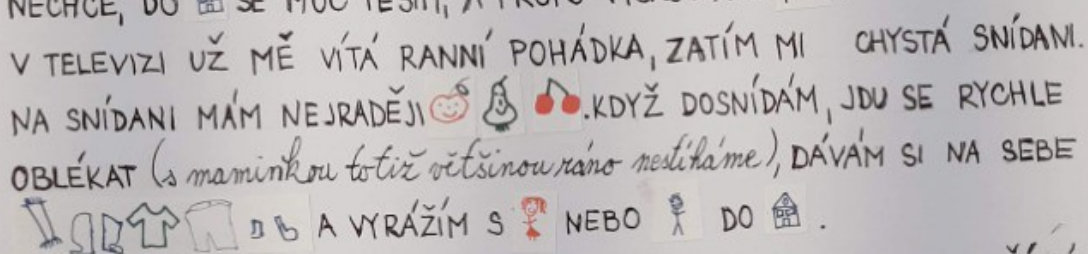 NECHCE, DO SE MOC TĚŠÍM, A
V TELEVIZI UŽ MĚ VÍTÁ RANNÍ POHÁDKA, ZATÍM MI CHYSTÁ SNÍDANI.
NA SNÍDANI MÁM NEJRADĚJI .KDYŽ DOSNÍDÁM, JDU SE RYCHLE
OBLÉKAT (s maminkou totiž většinou ráno nestíháme), DÁVÁM SI NA SEBE
A VYRÁŽÍM S NEBO DO .